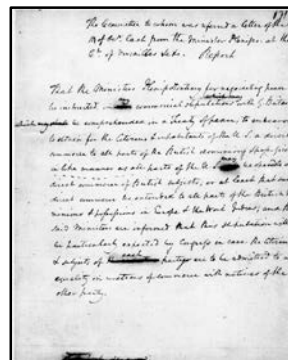 The Committee to whom was referred a letter of the
of Dr. Each from the Minister at the
6th of Report
That the Ministers Plenipotentiary for negotiating peace
be instructed commercial stipulations with G. Britain
be comprehended in a Treaty of peace, to endeavour
to obtain for the Citizens & inhabitants of the U. S. a direct
commerce to all parts of the British dominions & possessions
in like manner as all parts of the U. S. may be opened to a
direct commerce of British subjects; or at least that such
direct commerce be extended to all parts of the British do-
minions & possessions in Europe & the West Indies; and the
said Ministers are informed that this stipulation will
be particularly expected by Congress in case the Citizens
& subjects of each party are to be admitted to an
equality in matters of commerce with natives of the
other party.